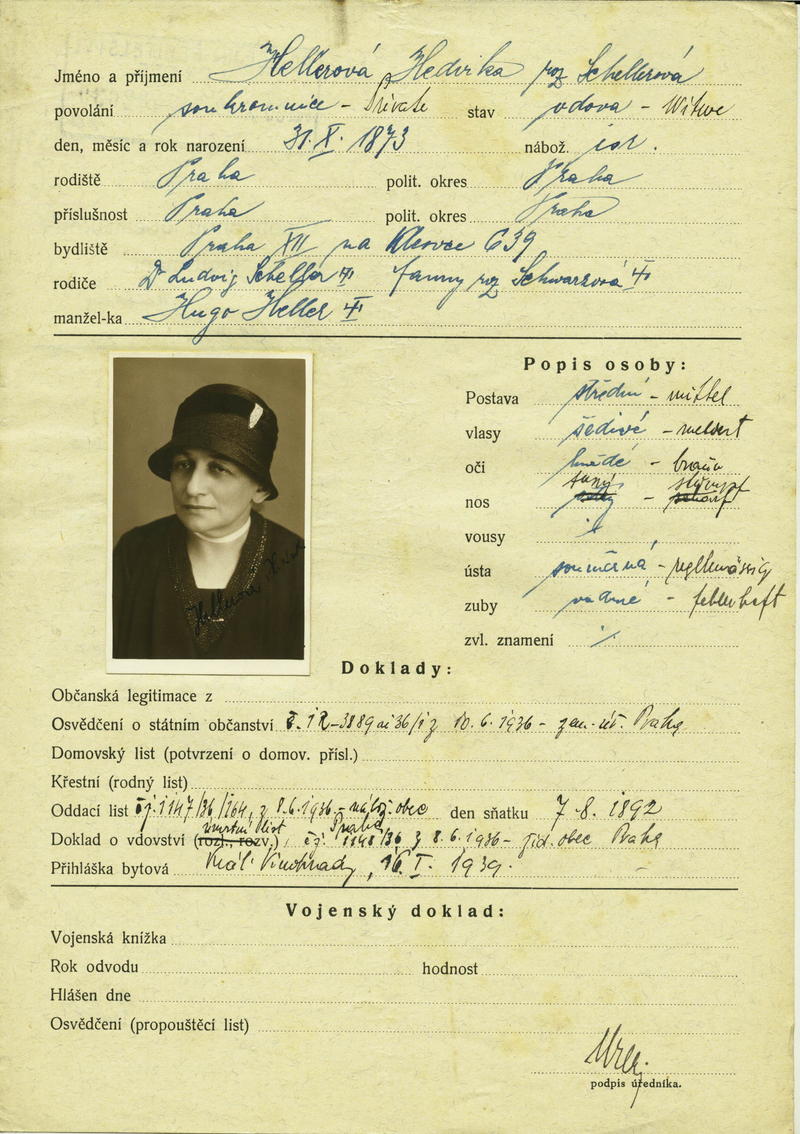 Jméno a příjmení Hellerová Hedvika roz Schellerová
povolání soukromnice - Private stav vdova - Witwe
den, měsíc a rok narození 31. X. 1873 nábož. isr.
rodiště Praha polit. okres Praha
příslušnost Praha polit. okres Praha
bydliště Praha XII na Klovce 639
rodiče Dr Ludvig Scheller Fanny roz Schwarzová
manžel-ka Hugo Heller
Popis osoby:
Postava střední - mittel
vlasy šedivé - meliert
oči hnědé - braun
nos tupý - stumpf
vousy
ústa souměrná - regelmässig
zuby vadné - fehlerhaft
zvl. znamení
Hellerová
Doklady:
Občanská legitimace z
Osvědčení o státním občanství č. IR-3889 ai 36/1 z 10. 6. 1936 - zem. úř. Praha
Domovský list (potvrzení o domov. přísl.)
Křestní (rodný list)
Oddací list čj. 1147/36/164, z 8.6.1936 - nábož. obec Praha den sňatku 7. 8. 1892
Doklad o vdovství (rozl., rozv.) úmrtní list čj. 1148/36 z 8. 6. 1936 - žid. obec Praha
Přihláška bytová Král. Vinohrady, 16. I. 1939.
Vojenský doklad:
Vojenská knížka
Rok odvodu hodnost
Hlášen dne
Osvědčení (propouštěcí list)
podpis úředníka.